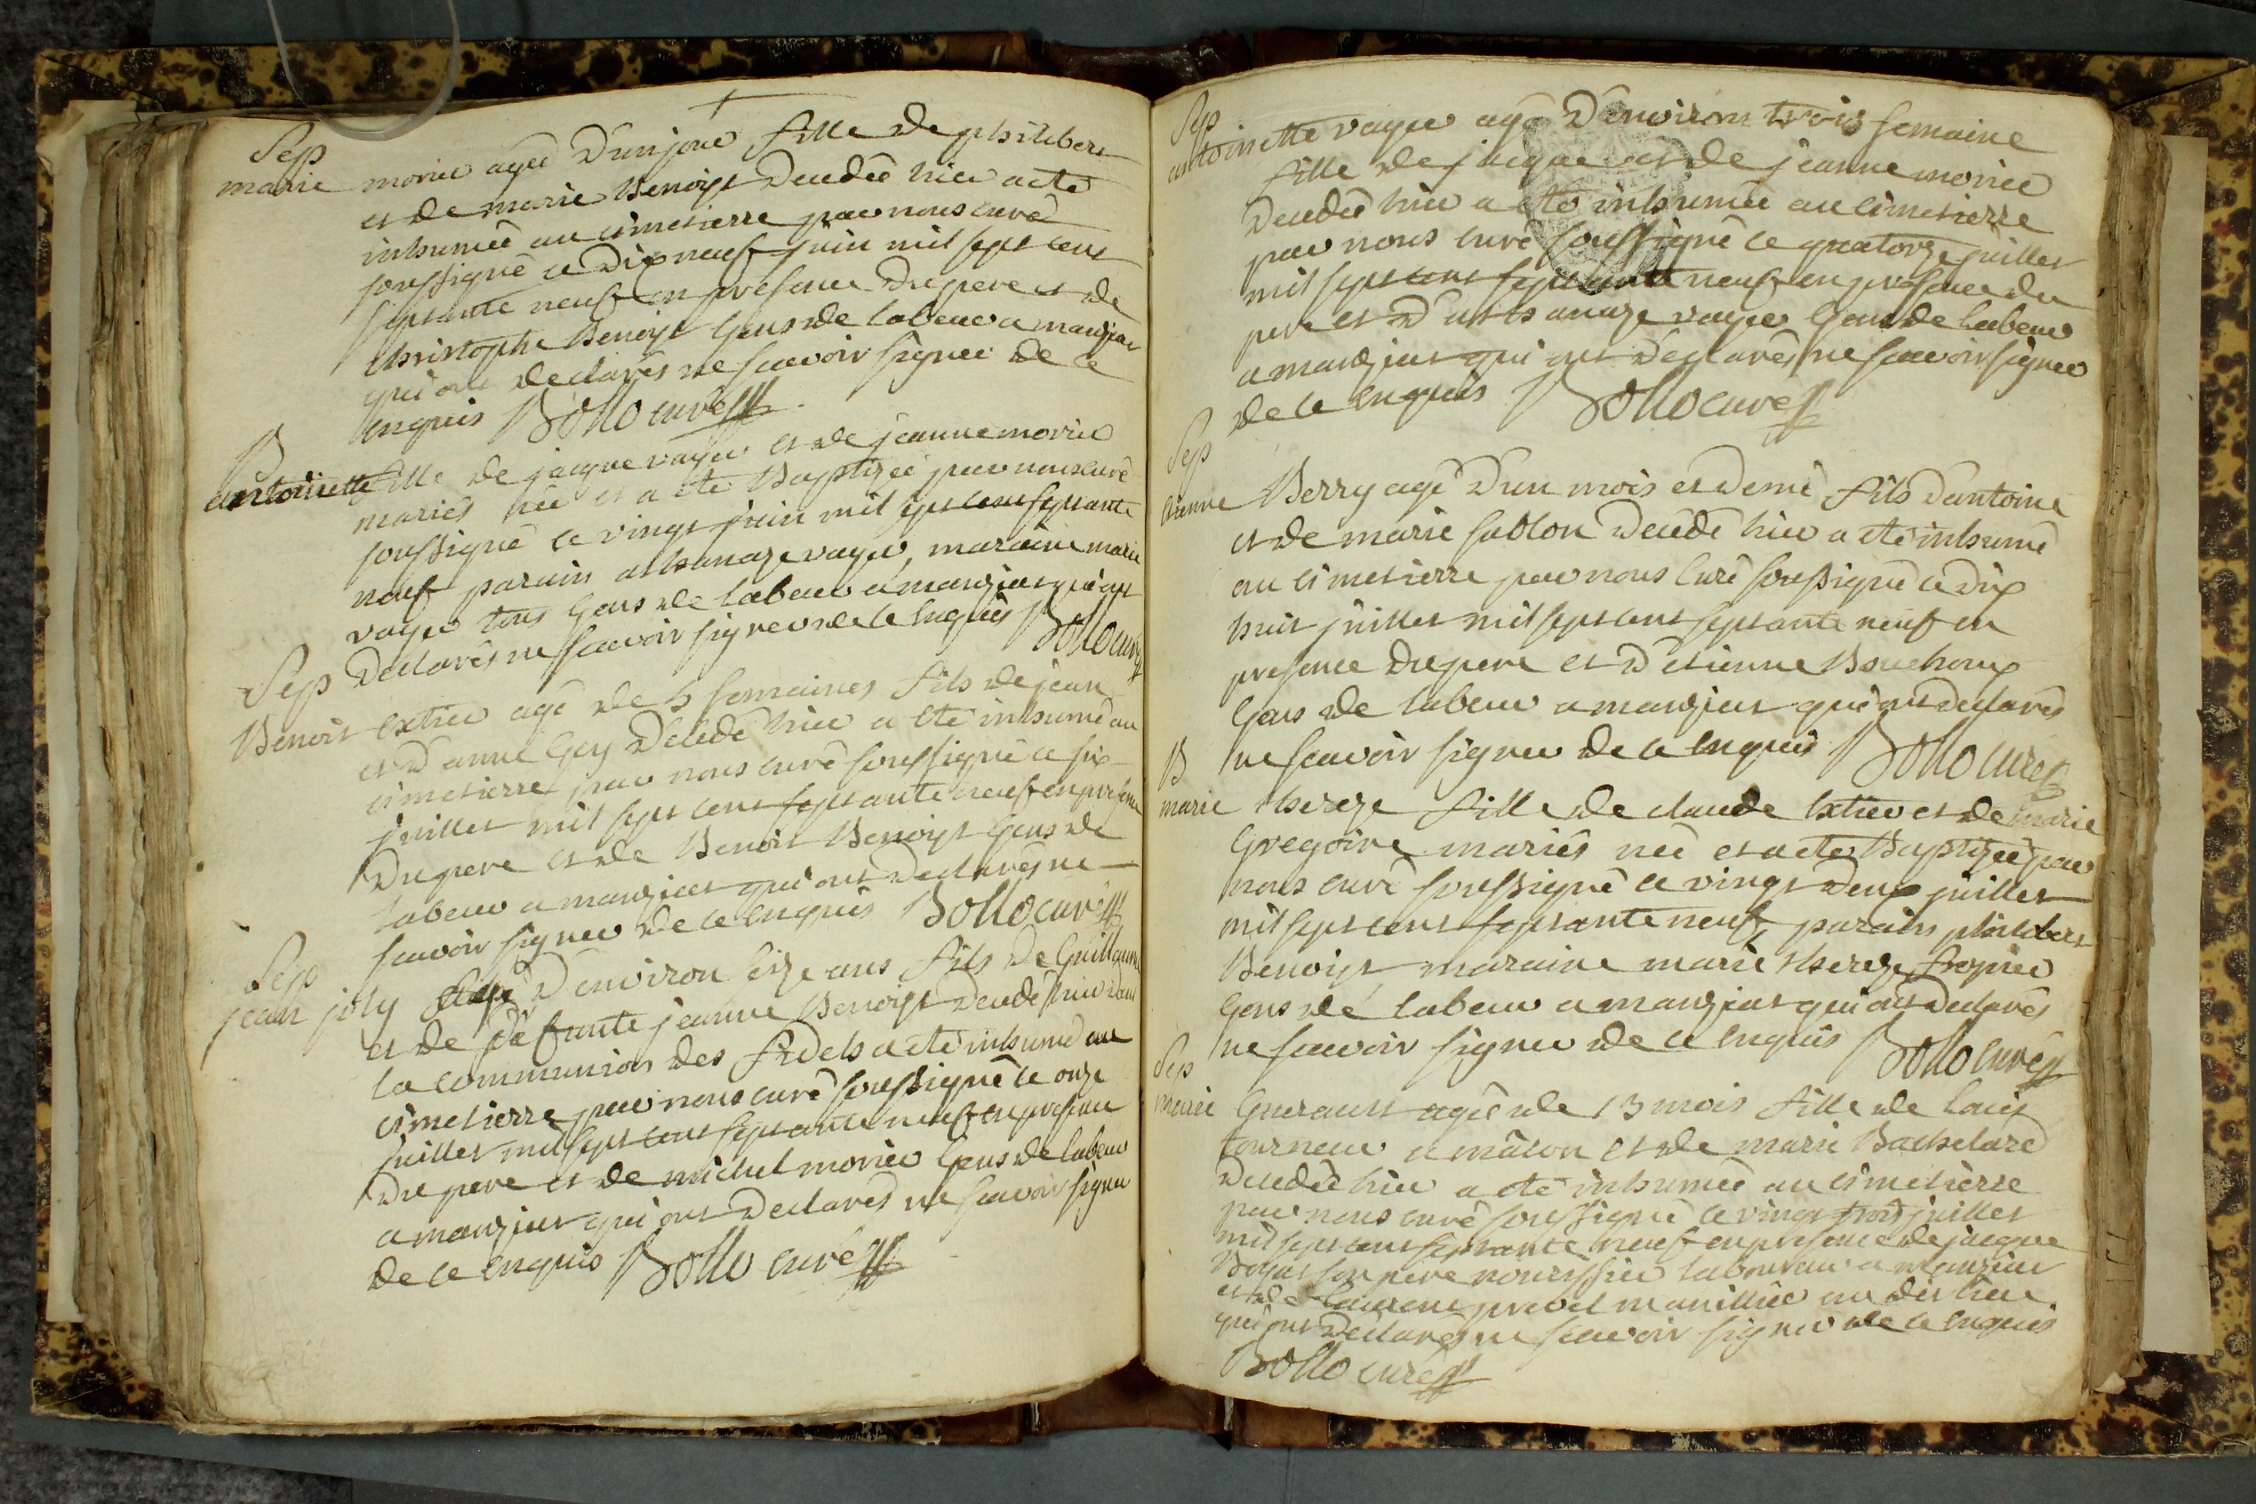 Sep
marie morier agée D'un jour fille de philibert
et de marie Benoist decedée hier a eté
inhumée au cimetierre par nous curé
soussigné ce dix neuf juin mil sept cent
septante neuf en presence du pere et de
christophe Benoist Gens de labeur a manziat
qui ont declarés ne scavoir signer de ce
enquis Bollo curé
B
antoinette fille de jacque vayer et de jeanne morier
mariés née et a eté Baptizée par nous curé
soussigné ce vingt juin mil sept cent septante
neuf parain athanaze vayer, maraine marie
vayer tous Gens de labeur a manziat qui ont
declarés ne scavoir signer de ce enquis Bollo curé
Sep
Benoit extier agé de 5 semaines fils de jean
et d'anne Gey decedé hier a eté inhumé au
cimetierre par nous curé soussigné ce six
juillet mil sept cent septante neuf en presence
du pere et de Benoit Benoist Gens de
labeur a manziat qui ont declarés ne
scavoir signer de ce enquis Bollo curé
Sep
jean joly agé D'environ seize ans fils de Guillaume
et de defunte jeanne Benoist decedé hier dans
la communion des fidels a eté inhumé au
cimetierre par nous curé soussigné ce onze
juillet mil sept cent septante neuf en presence
du pere et de michel morier Gens de labeur
a manziat qui ont declarés ne scavoir signer
de ce enquis Bollo curé
Sep
antoinette vayer agé D'environ trois semaine
fille de jacque et de jeanne morier
decedée hier a eté inhumée au cimetierre
par nous curé soussigné ce quatorze juillet
mil sept cent septante neuf en presence du
pere et D'athanaze vayer Gens de labeur
a manziat qui ont declarés ne scavoir signer
de ce enquis Bollo curé
Sep
Berry agé D'un mois et demi fils d'antoine
et de marie sablon decedé hier a eté inhumé
au cimetierre par nous curé soussigné ce dix
huit juillet mil sept cent septante neuf en
presence du pere et D'etienne Bouchoux
Gens de labeur a manziat qui ont declarés
ne scavoir signer de ce enquis Bollo curé
B
marie thereze fille de claude extier et de marie
Gregoire mariés née et a eté Baptizée par
nous curé soussigné ce vingt deux juillet
mil sept cent septante neuf, parain philibert
Benoist maraine marie thereze
Gens de labeur a manziat qui ont declarés
ne scavoir signer de ce enquis Bollo curé
Sep
marie Guerault agée de 13 mois fille de louis
tourneur a mâcon et de marie Bachelard
decedée hier a eté inhumée au cimetierre
par nous curé soussigné ce vingt trois juillet
mil sept cent septante neuf en presence de jacque
Boyat son pere nourissier laboureur a manziat
et de laurent prevel manillier au dit lieu
qui ont declarés ne scavoir signer de ce enquis
Bollo curé